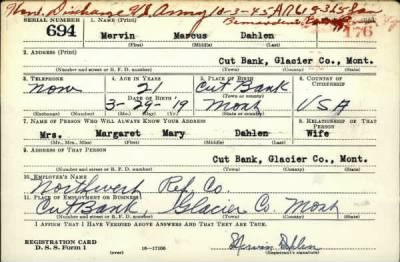 Hon. Discharge US Army 10-3-45
SERIAL NUMBER 1. NAME (Print)
694 Mervin Marcus Dahlen
(First) (Middle) (Last)
2. ADDRESS (Print)
Cut Bank, Glacier Co., Mont.
(Number and street or R. F. D. number) (Town) (County) (State)
3. TELEPHONE 4. AGE IN YEARS 5. PLACE OF BIRTH 6. COUNTRY OF CITIZENSHIP
None 21 Cut Bank
(Town or county)
DATE OF BIRTH
3-29-19 Mont USA
(Exchange) (Number) (Mo.) (Day) (Yr.) (State or country)
7. NAME OF PERSON WHO WILL ALWAYS KNOW YOUR ADDRESS 8. RELATIONSHIP OF THAT PERSON
Mrs. Margaret Mary Dahlen Wife
(Mr., Mrs., Miss) (First) (Middle) (Last)
9. ADDRESS OF THAT PERSON
Cut Bank, Glacier Co., Mont.
(Number and street or R. F. D. number) (Town) (County) (State)
10. EMPLOYER'S NAME
Northwest Ref. Co.
11. PLACE OF EMPLOYMENT OR BUSINESS
Cut Bank, Glacier Co. Mont
(Number and street or R. F. D. number) (Town) (County) (State)
I AFFIRM THAT I HAVE VERIFIED ABOVE ANSWERS AND THAT THEY ARE TRUE.
REGISTRATION CARD
D. S. S. Form 1 (over) 16-17106 Mervin Dahlen